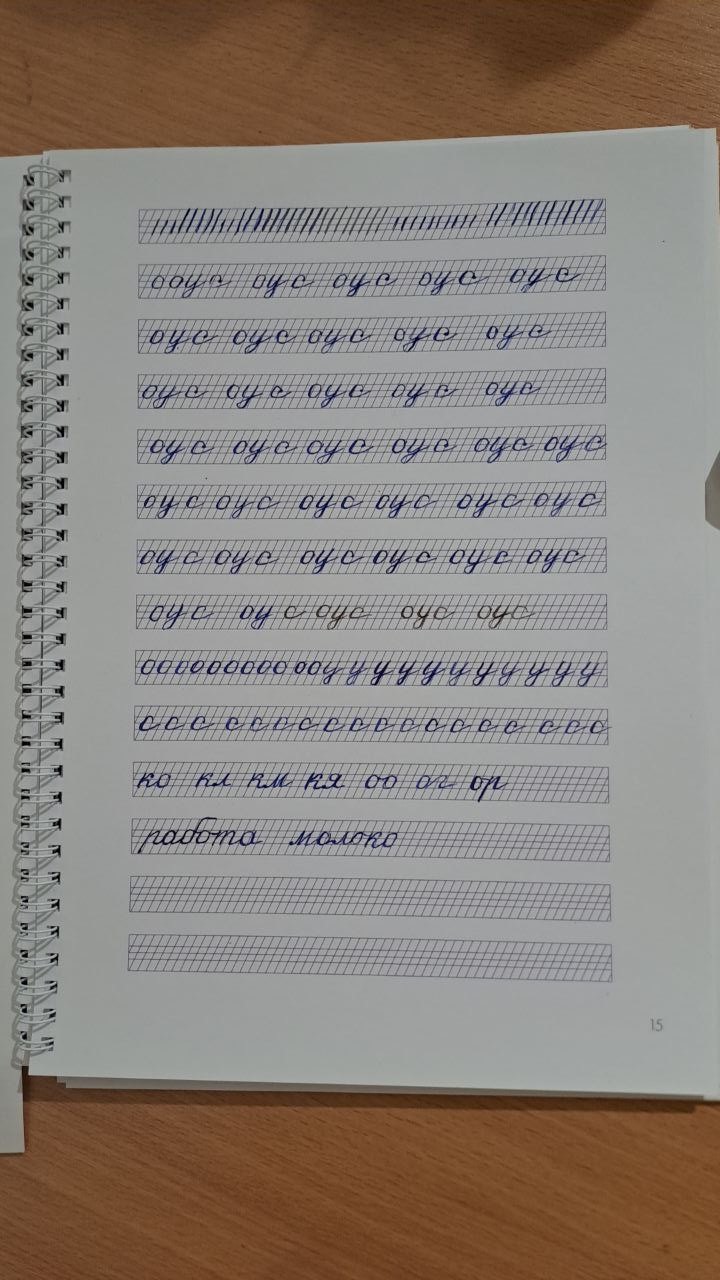 ооус оус оус оус оус
оус оус оус оус оус
оус оус оус оус оус
оус оус оус оус оус оус
оус оус оус оус оус оус
оус оус оус оус оус оус
оус оус оус оус оус
ооооооооооооууууууууууу
ссс ссссссссссссс ссс
ко кл км кя оо ог ор
работа молоко
15